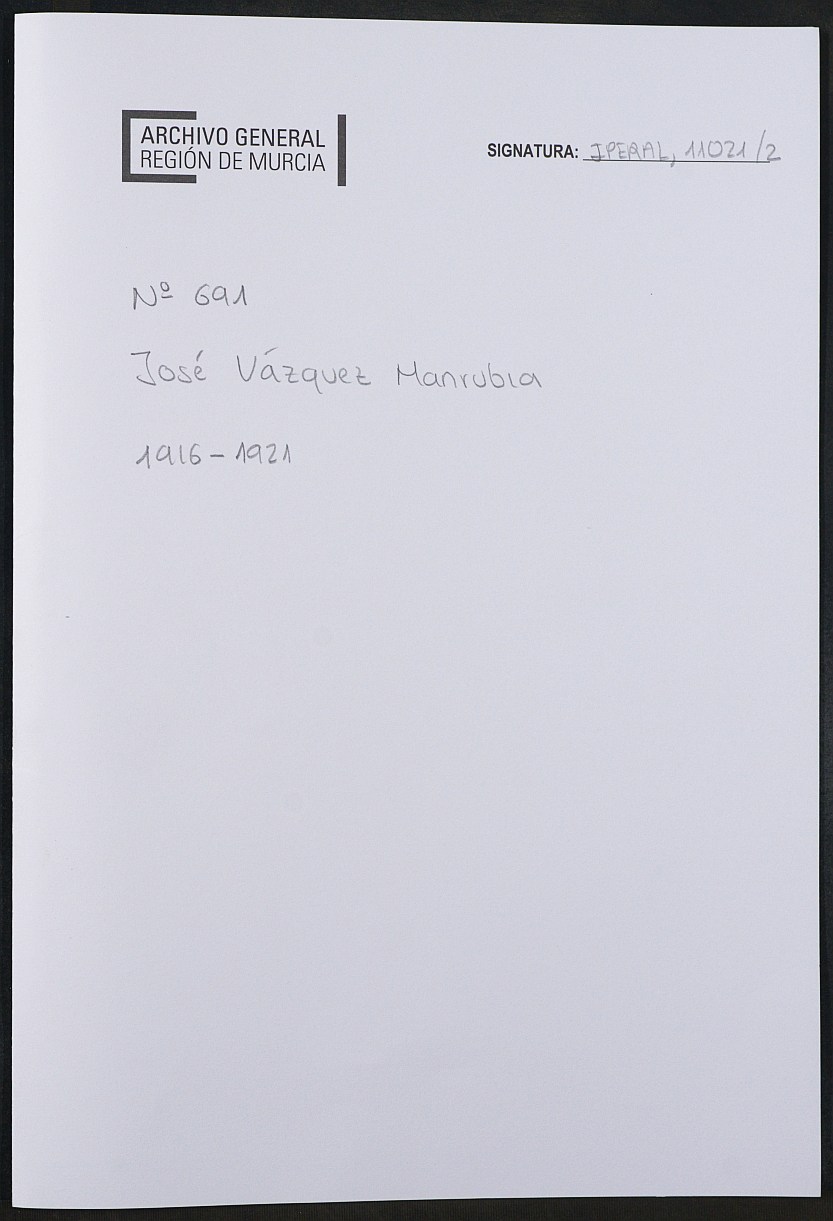 ARCHIVO GENERAL
REGIÓN DE MURCIA
SIGNATURA: IPERAL, 11021/2
Nº 691
José Vázquez Manrubia
1916-1921